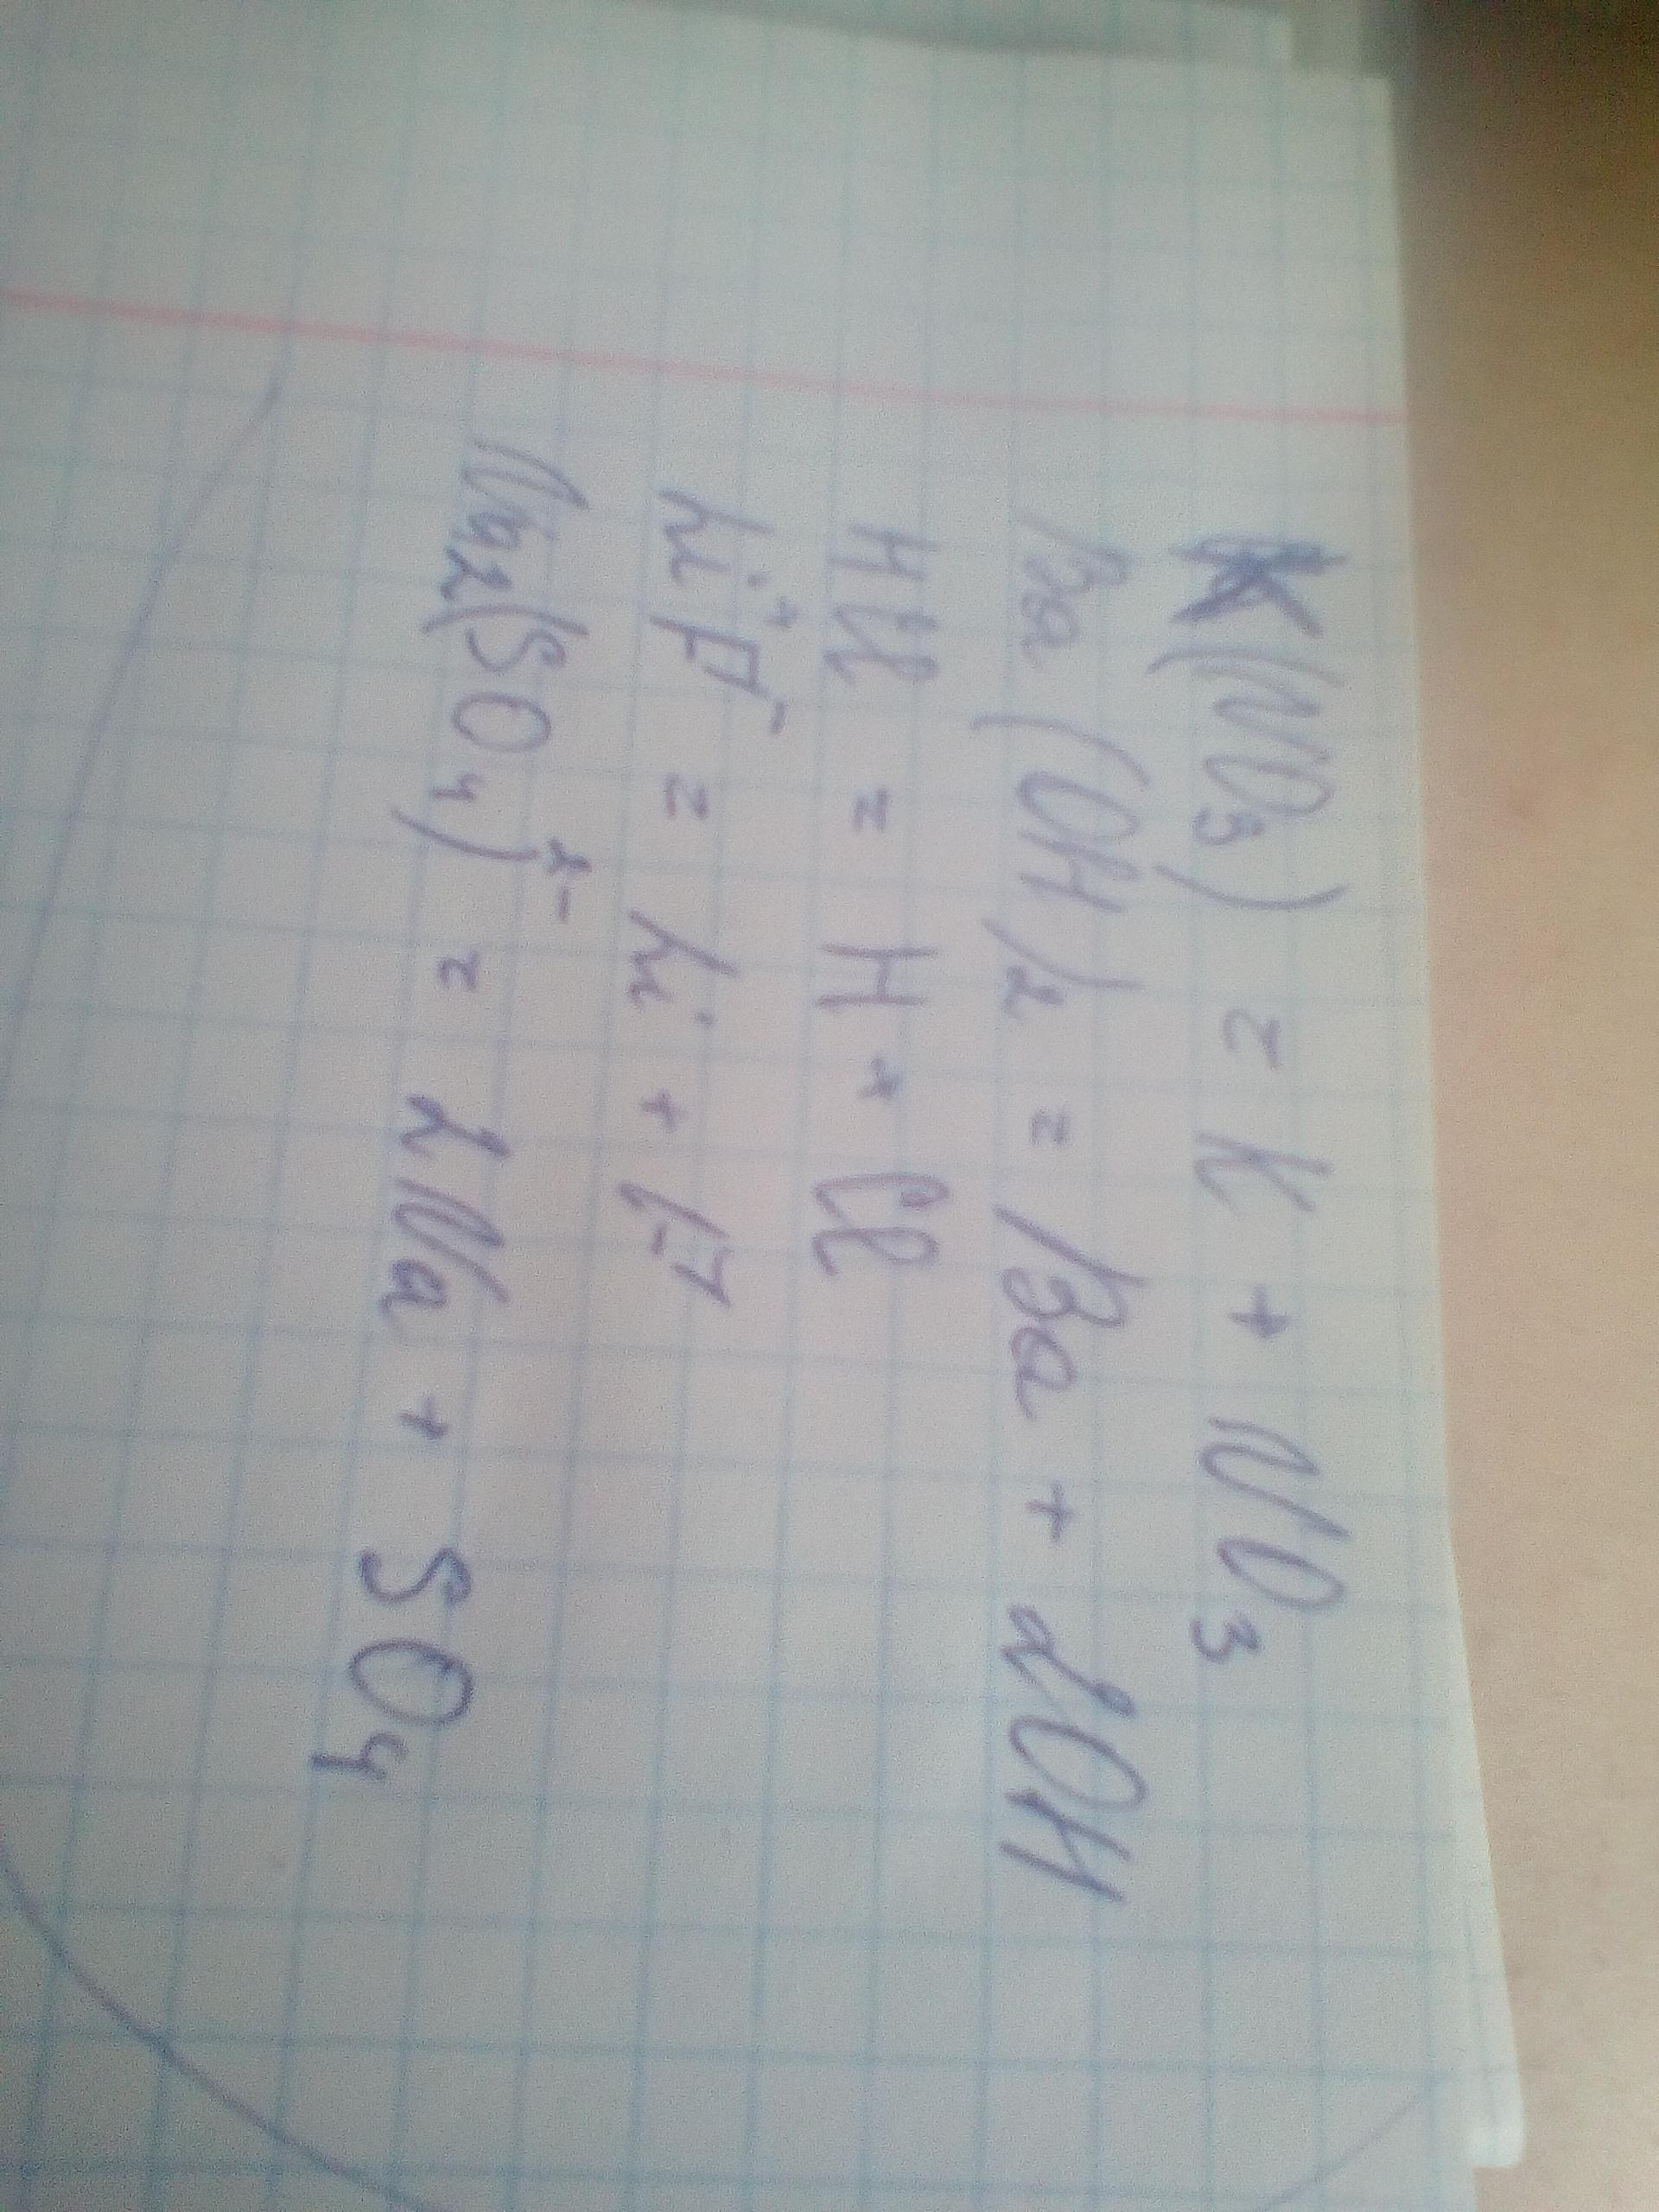 K(NO₃) = K + NO₃
Ba(OH)₂ = Ba + 2OH
HCl = H + Cl
Li⁺F⁻ = Li + F
Na₂(SO₄)²⁻ = 2Na + SO₄